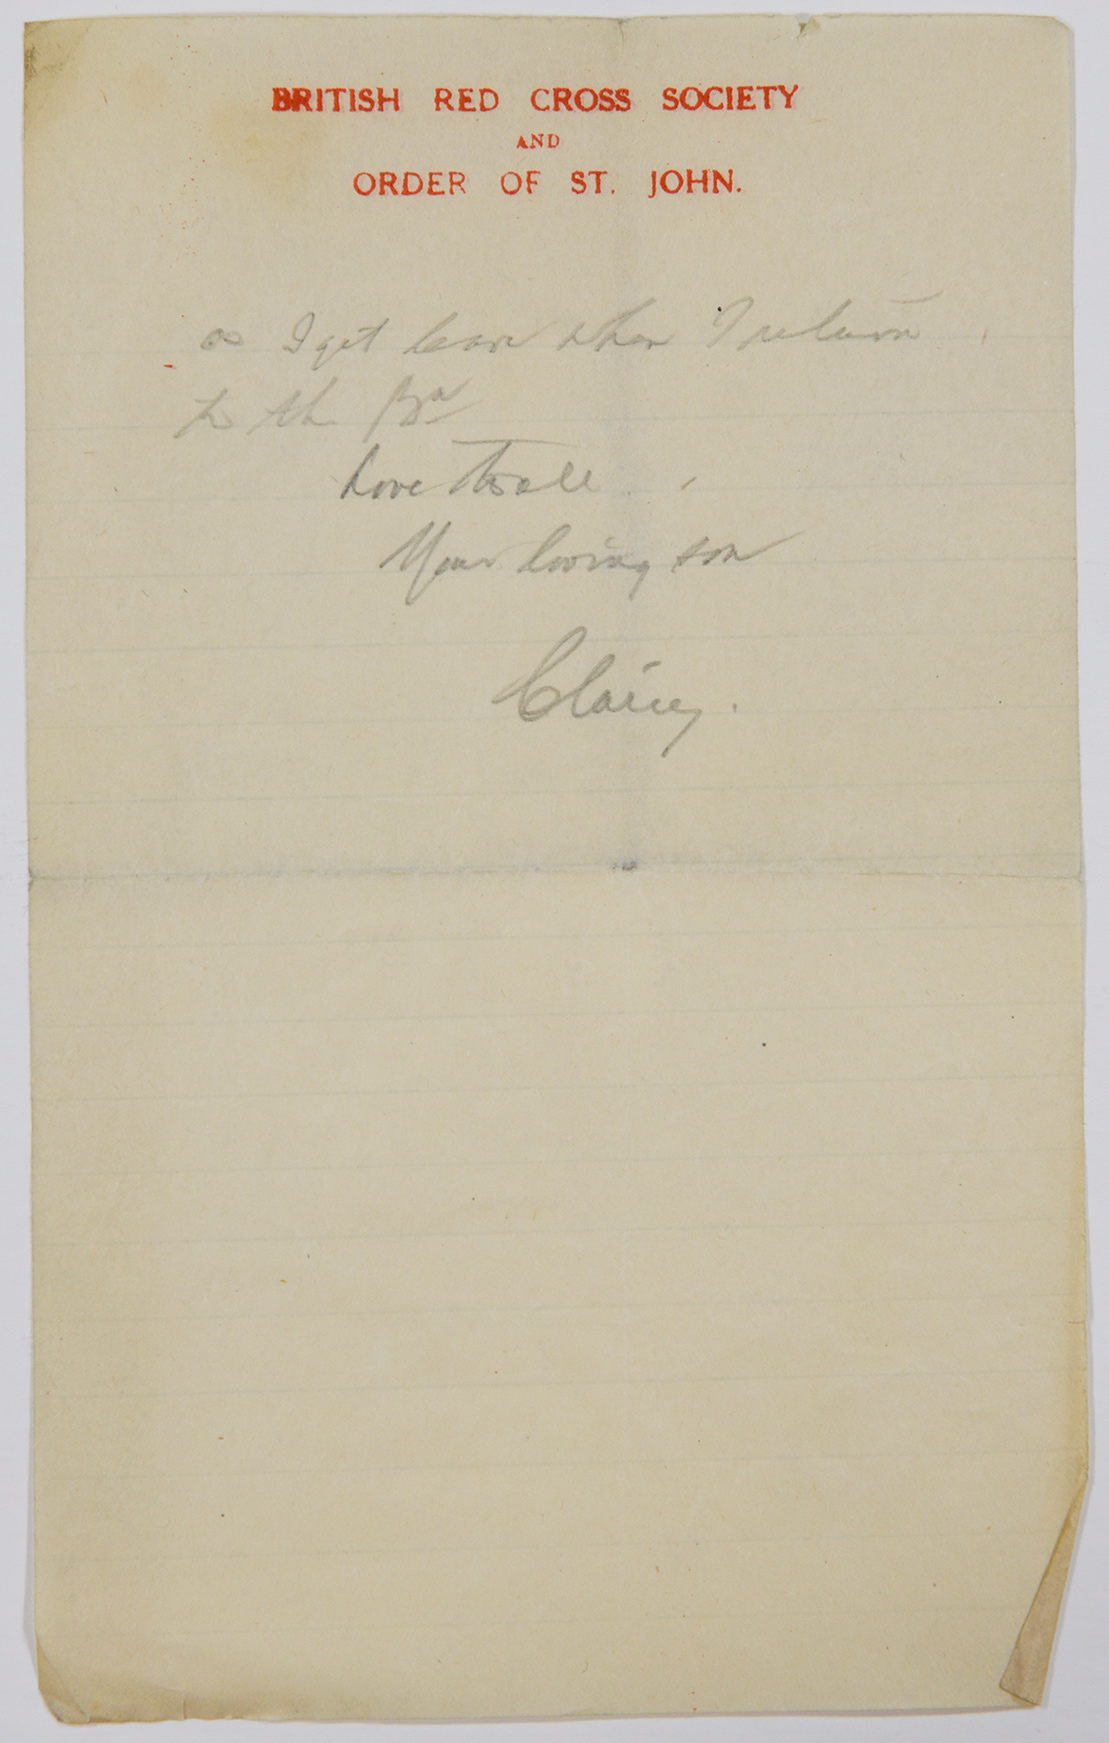 BRITISH RED CROSS SOCIETY
AND
ORDER OF ST. JOHN.
as I get leave when I return
to the Bn
Love to all
Your loving son